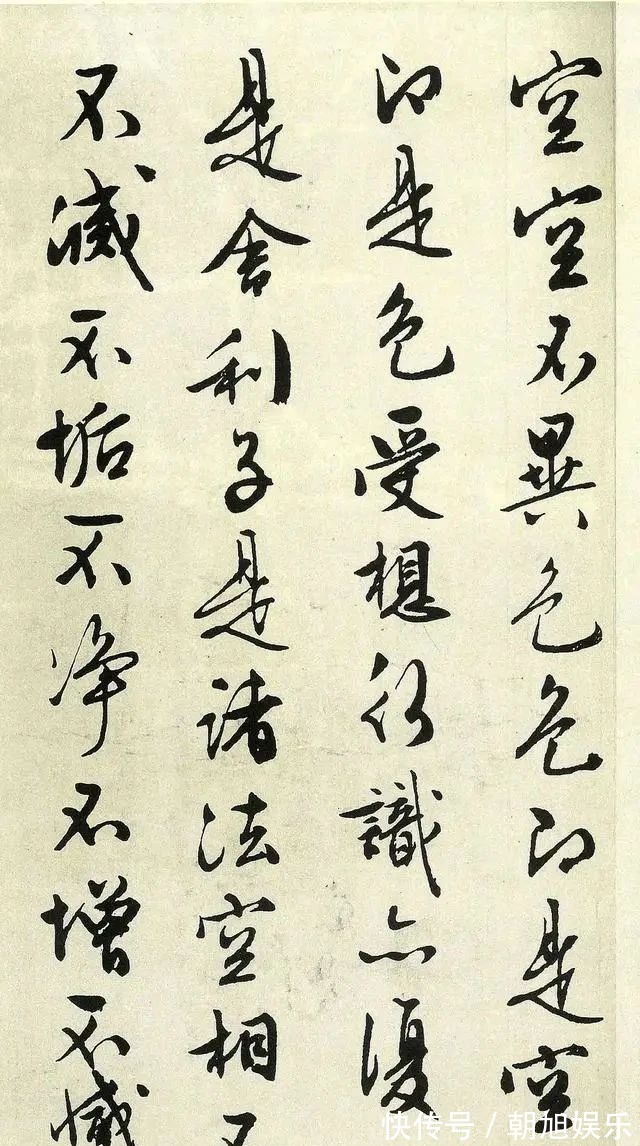 空空不異色色即是空
即是色受想行識亦復
是舍利子是諸法空相不
不滅不垢不净不增不減
快传号 / 朝旭娱乐